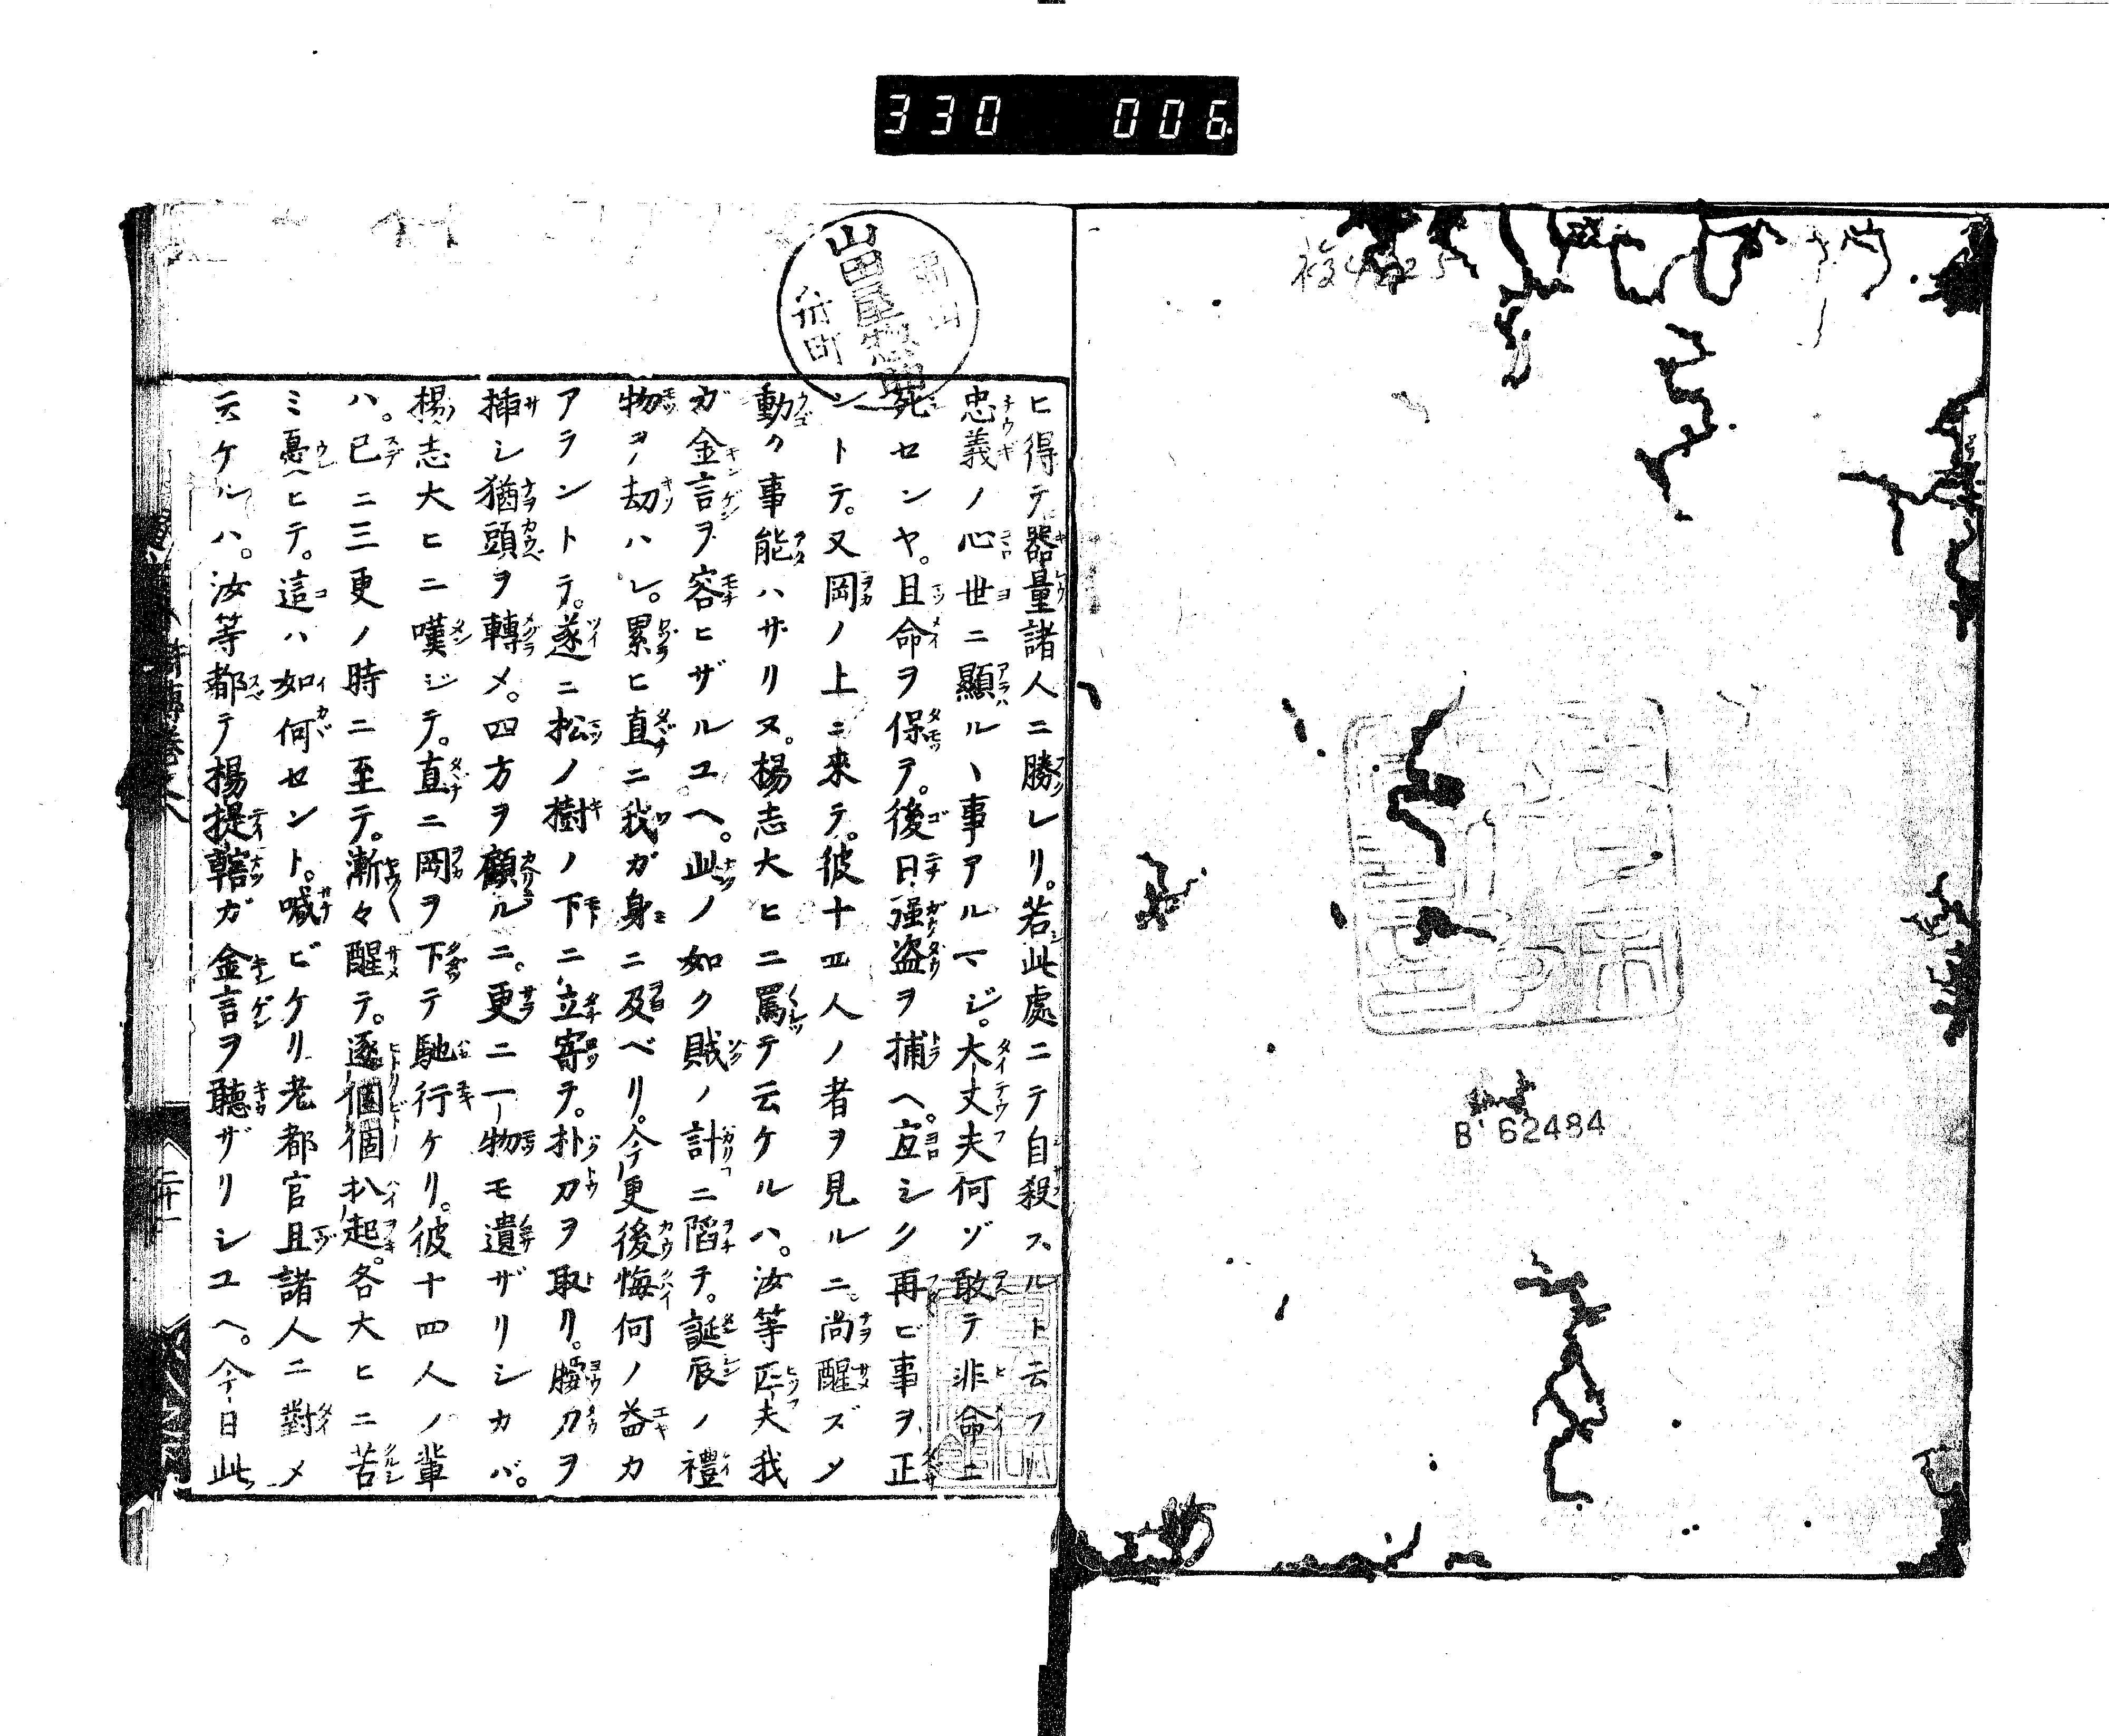 330 006
B' 62484
山田屋惣
ヒ得テ器量諸人ニ勝レリ。若此處ニテ自殺スルト云フ
忠義ノ心世ニ顯ルヽ事アルマジ。大丈夫何ゾ敢テ非命ニ
死センヤ。且命ヲ保ア。後日强盗ヲ捕ヘ。宜シク再ビ事ヲ正
ントテ。又岡ノ上ニ來テ。彼十四人ノ者ヲ見ルニ。尚醒ズメ
動ク事能ハザリヌ。楊志大ヒニ罵テ云ケルハ。汝等匹夫我
ガ金言ヲ容ヒザルユヘ。此ノ如ク賊ノ計ニ陷テ。誕辰ノ禮
物ヲ劫ハレ。累ヒ直ニ我ガ身ニ及ベリ。今更後悔何ノ益カ
アラントテ。遂ニ松ノ樹ノ下ニ立寄テ。朴刀ヲ取リ。腰刀ヲ
挿シ猶頭ヲ轉メ。四方ヲ顧ルニ。更ニ一物モ遺ザリシカバ。
楊志大ヒニ嘆ジテ。直ニ岡ヲ下テ馳行ケリ。彼十四人ノ輩
ハ。已ニ三更ノ時ニ至テ。漸々醒テ。逐個個扒起。各大ヒニ苦
ミ憂ヒテ。這ハ如何セント。喊ビケリ老都官且諸人ニ對メ
云ケルハ。汝等都テ楊提轄ガ金言ヲ聽ザリシユヘ。今日此